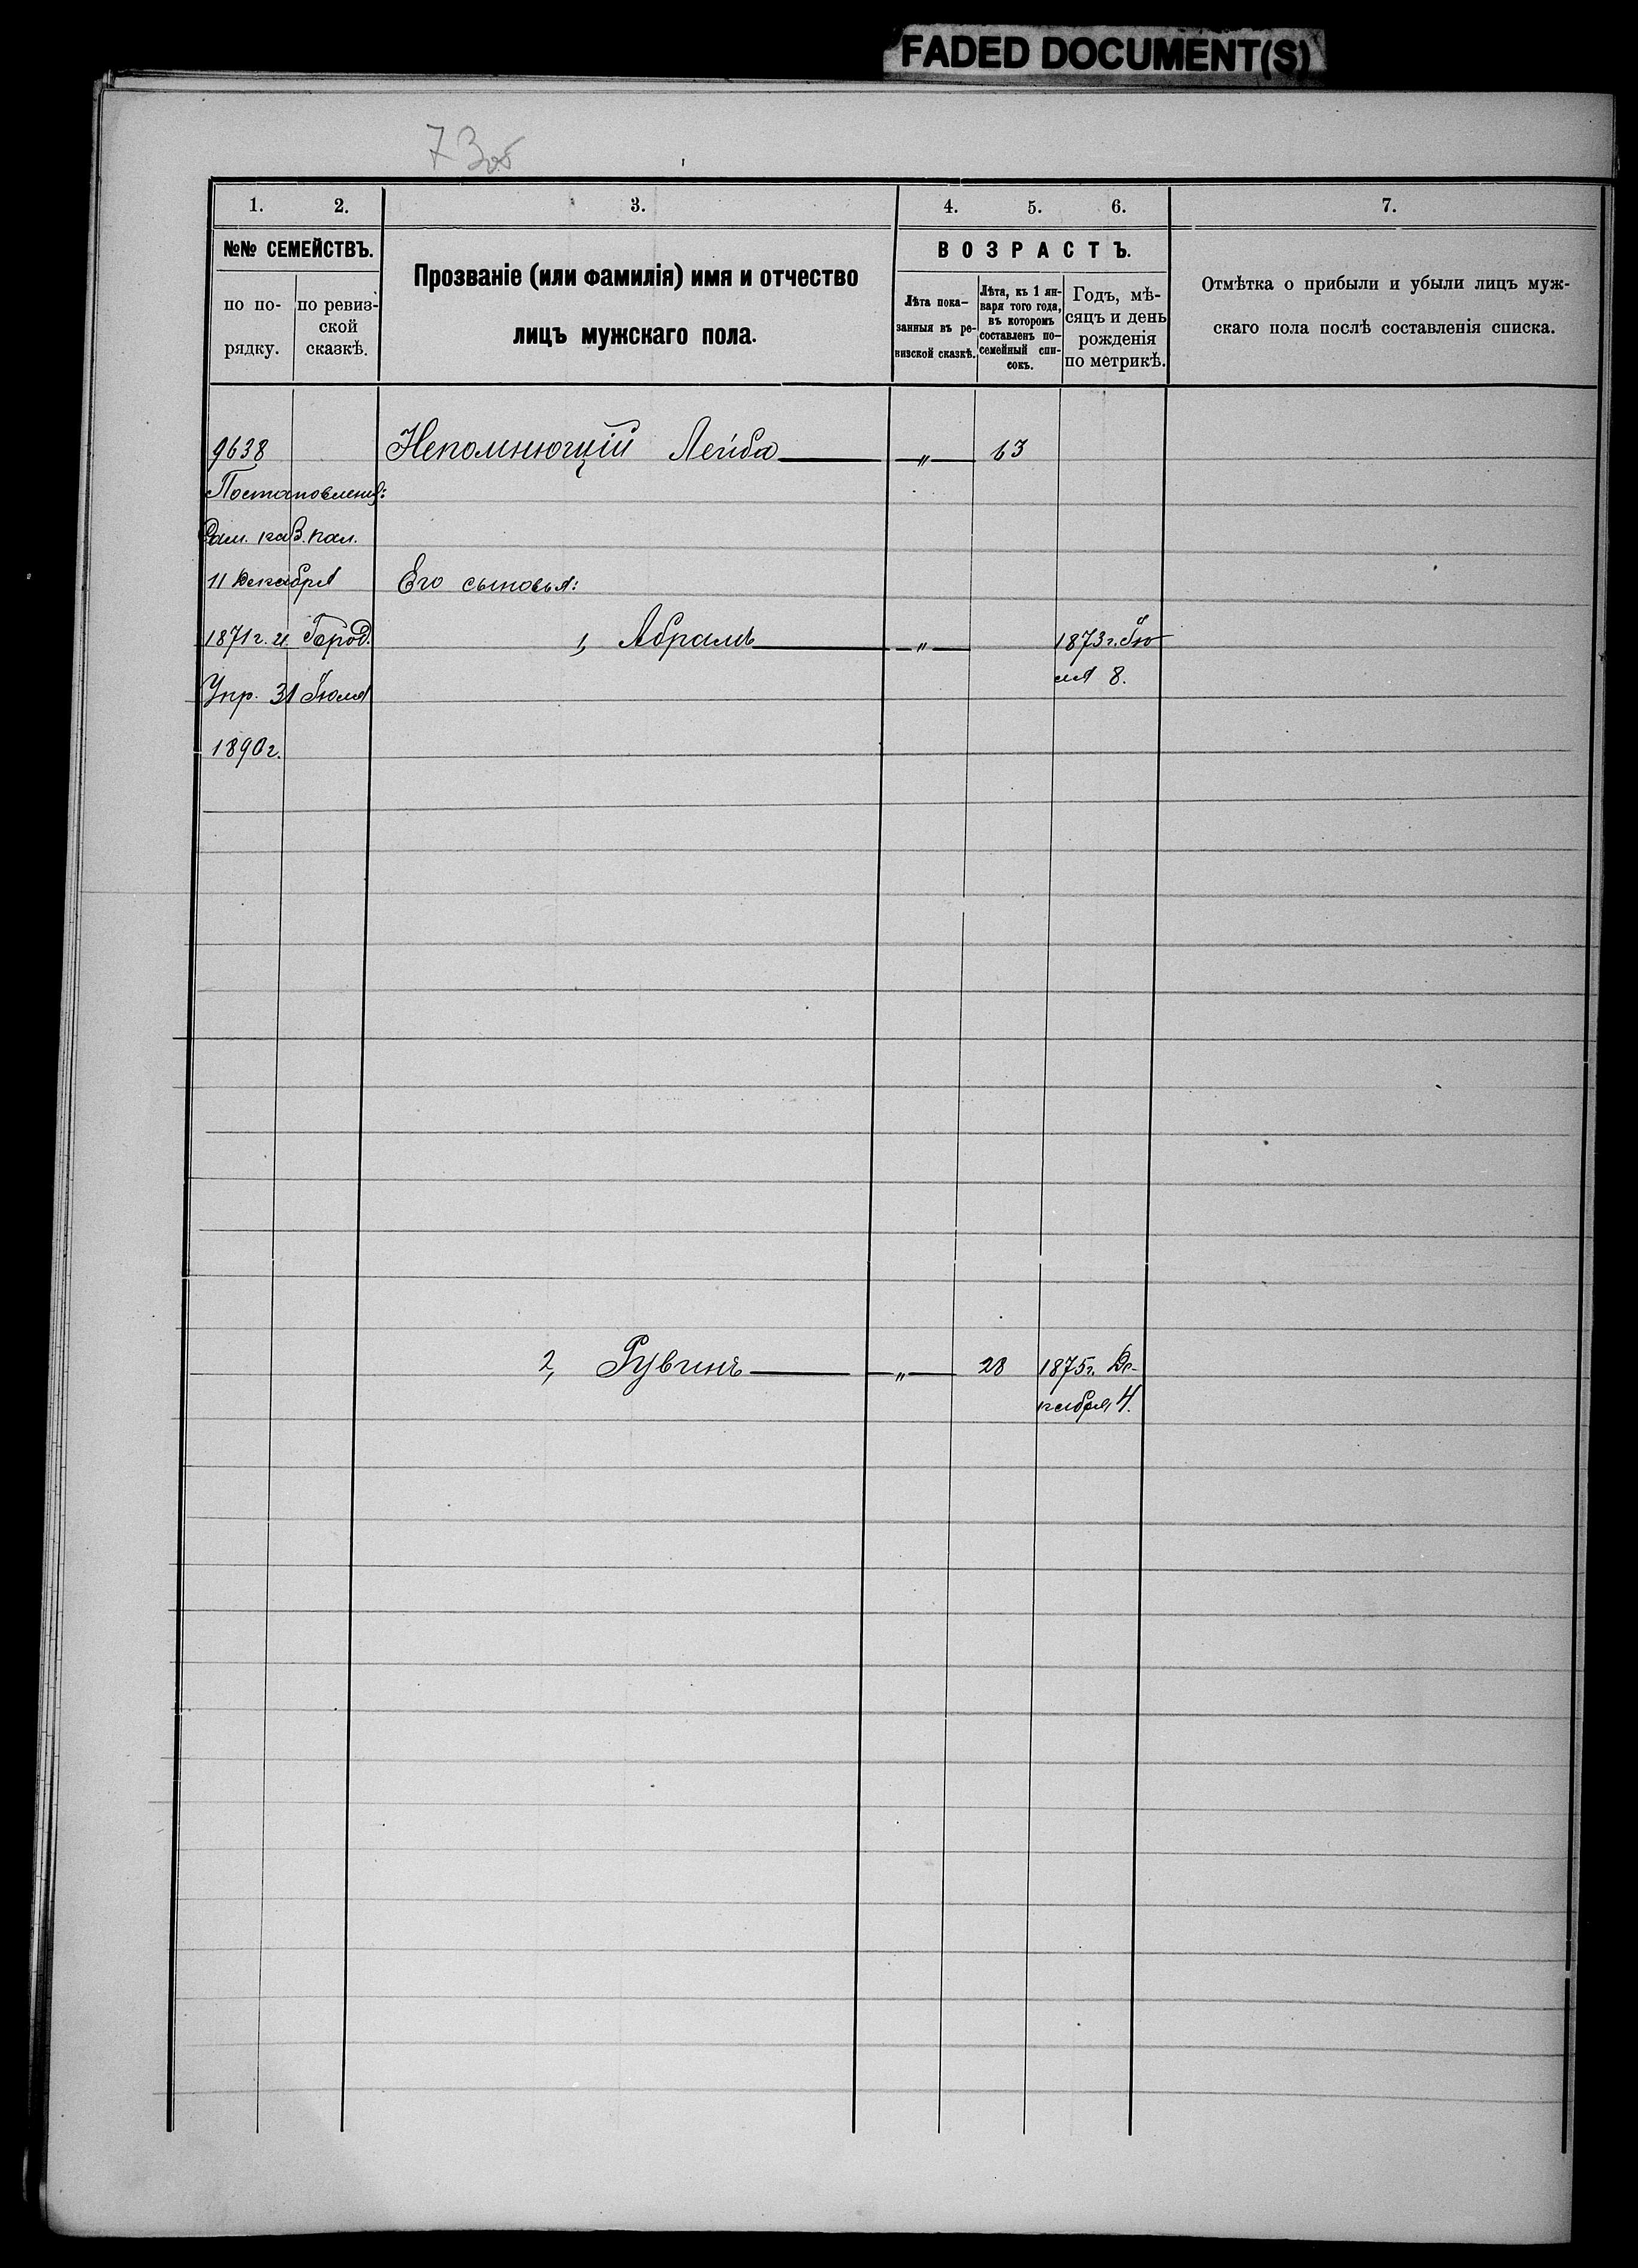 FADED DOCUMENT(S)
73об
1. 2. 3. 4. 5. 6. 7.
№№ СЕМЕЙСТВЪ.
по по-
рядку.
по ревиз-
ской
сказкѣ.
Прозваніе (или фамилія) имя и отчество
лицъ мужскаго пола.
ВОЗРАСТЪ.
Лѣта пока-
занныя въ ре-
визской сказкѣ.
Лѣта, къ 1 ян-
варя того года,
въ которомъ
составленъ по-
семейный спи-
сокъ.
Годъ, мѣ-
сяцъ и день
рожденія
по метрикѣ.
Отмѣтка о прибыли и убыли лицъ муж-
скаго пола послѣ составленія списка.
9638 Непомнющій Лейба — „ — 63
Постановленія:
каз. пал.
11 Декабря Его сыновья:
1871г. и Город. 1, Абрамъ — „ — 1873г. Ію-
ля 8.
Упр. 31 Іюля
1890г.
2, Рувинъ — „ — 28 1875г. Де-
кабря 4.